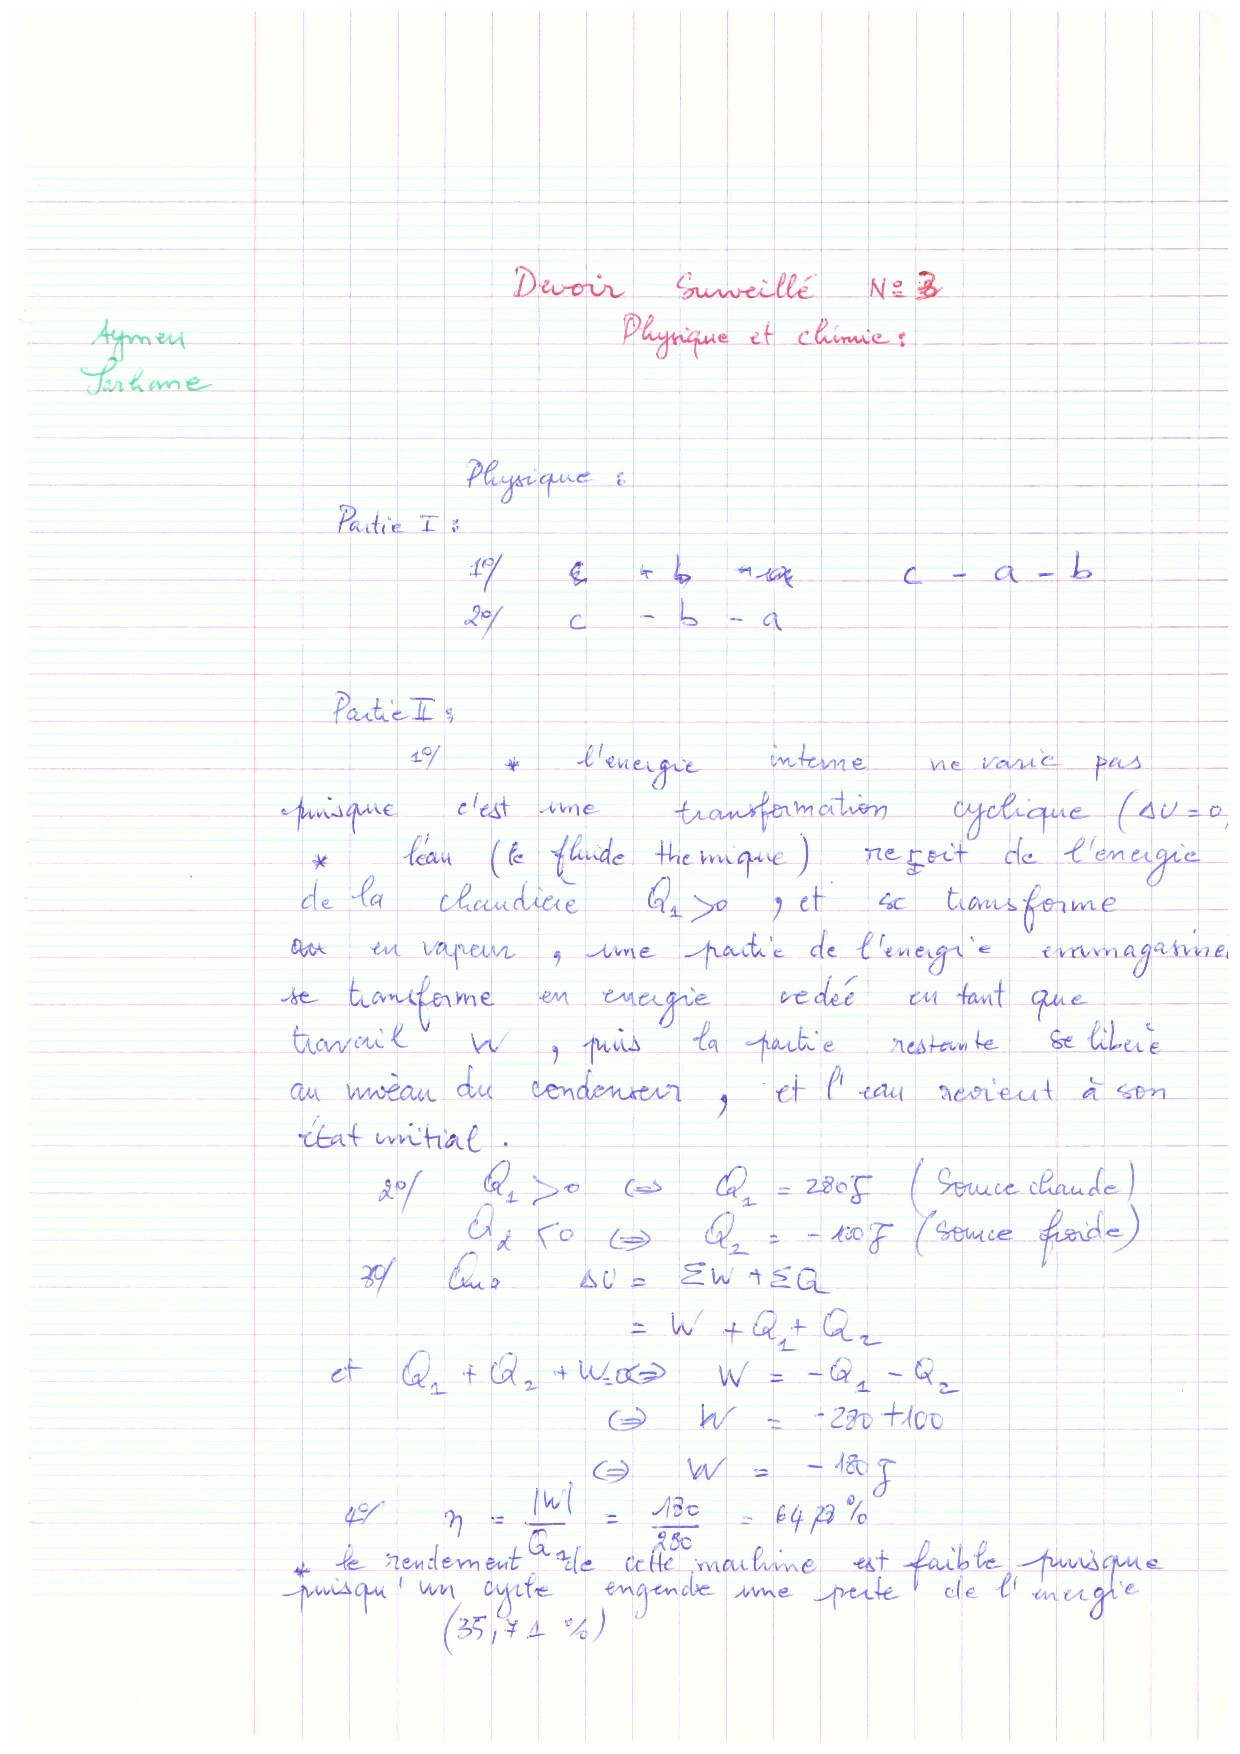 Devoir Surveillé N° 3
Physique et chimie :
Aymen
Sarhane
Physique :
Partie I :
1°/ c - a - b
2°/ c - b - a
Partie II :
1°/ * l'energie interne ne varie pas
puisque c'est une transformation cyclique (ΔU = 0,
* l'eau (le fluide themique) reçoit de l'energie
de la chaudière Q1 > 0 , et se transforme
en vapeur , une partie de l'énergie emmagasine
se transforme en energie cedée en tant que
travail W , puis la partie restante se libère
au niveau du condenseur , et l'eau revient à son
état initial .
2°/ Q1 > 0 ⇔ Q1 = 280 J (Source chaude)
Q2 < 0 ⇔ Q2 = - 100 J (source froide)
3°/ On a ΔU = ΣW + ΣQ
= W + Q1 + Q2
et Q1 + Q2 + W = 0 ⇔ W = - Q1 - Q2
⇔ W = - 280 + 100
⇔ W = - 180 J
4°/ η = |W| / Q1 = 180 / 280 = 64,28 %
* le rendement de cette machine est faible puisque
puisqu'un cycle engende une perte de l'énergie
(35,71 %)